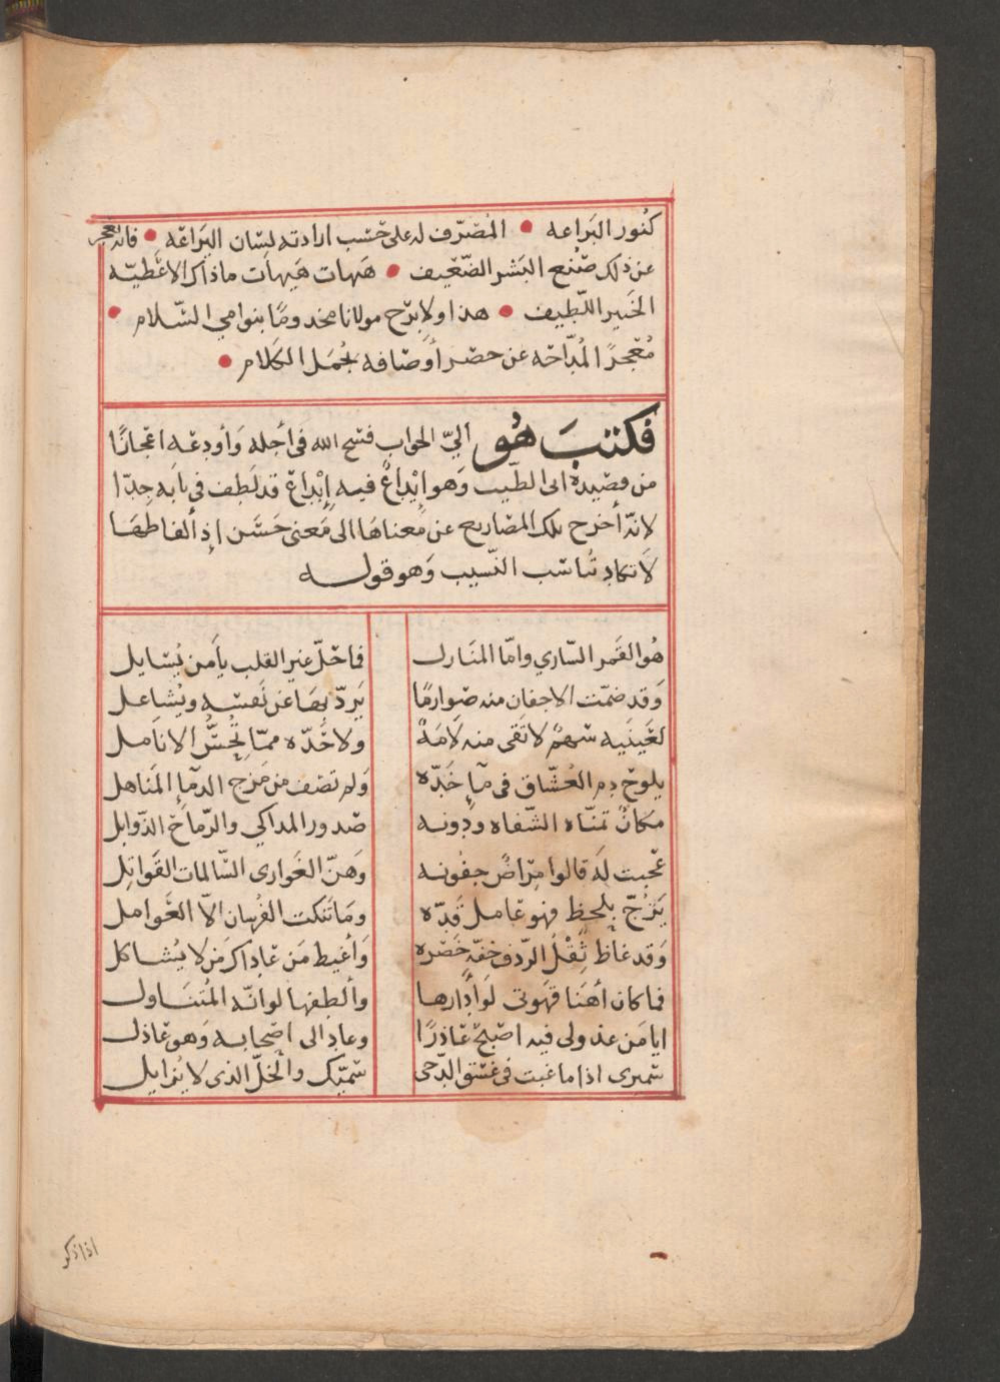 كنوز البراعه • المصرّف له على حسب ارادته لسان اليراعه • فانه يعجز
عن ذلك صنع البشر الضعيف • هيهات هيهات ماذاك الا عطيّة
الخبير اللّطيف • هذا ولا برح مولانا مخدومًا بنوامي السّلام •
مُعجزًا لمُدّاحه عن حصر أوصافه بجُمَل الكلام •
فكتبَ هُو اليّ الجواب فسح الله في أجله وَأودعه اعجازًا
من قصيدة ابى الطّيب وَهو إبْداعٌ فيه إِبْداعٌ قد لَطف في بابَه جدّا
لانّه أخرج تلك المصاريع عن مَعناهَا الى مَعنى حَسَن إذ ألفاظهَا
لا تكاد تُناسب النّسيب وَهو قوله
هُو القَمر السّاري وامّا المنَازل فاحَلّ غير القلب يا مَن يُسَايل
وَقد ضمّت الاجفان منه صَوارمًا يَردّ بهَا عن نَفسه ويُشاغل
لعَينَيه سَهمٌ لا تَقى منه لَامَةٌ ولا حَدّه ممّا تجُسُّ الانامل
يلوح دم العُشّاق في مآء خَدّه وَلم تصف من مَزج الدمآء المَناهل
مكانٌ تمنّاه الشّفاه وَدونه صدور المذاكي والرّماح الذّوابل
عجبت لَه قالوا مِرَاضٌ جفونه وَهنّ الغَوازى السّالمات القَواتِل
يَزُجّ بِلَحظٍ فهو عَامل قدّه وَمَا تنكت الفُرسان الاّ العَوامل
وَقد غاظ ثِقْلُ الرّدف خفّة خَصْره وَأغيظ مَن عَاداك مَن لا يُشاكل
فما كان أهنَا قهوتى لَوأدارها وألطفها لو انّه المُتنَاول
ايا مَن عذولى فيه اصبح عَاذرًا وعاد الى اصحابه وَهو عَاذل
سَميرى اذا ما غبت فى غسَق الدّجى سَميّك والخلّ الذى لا يُزايل
اذا ذكر